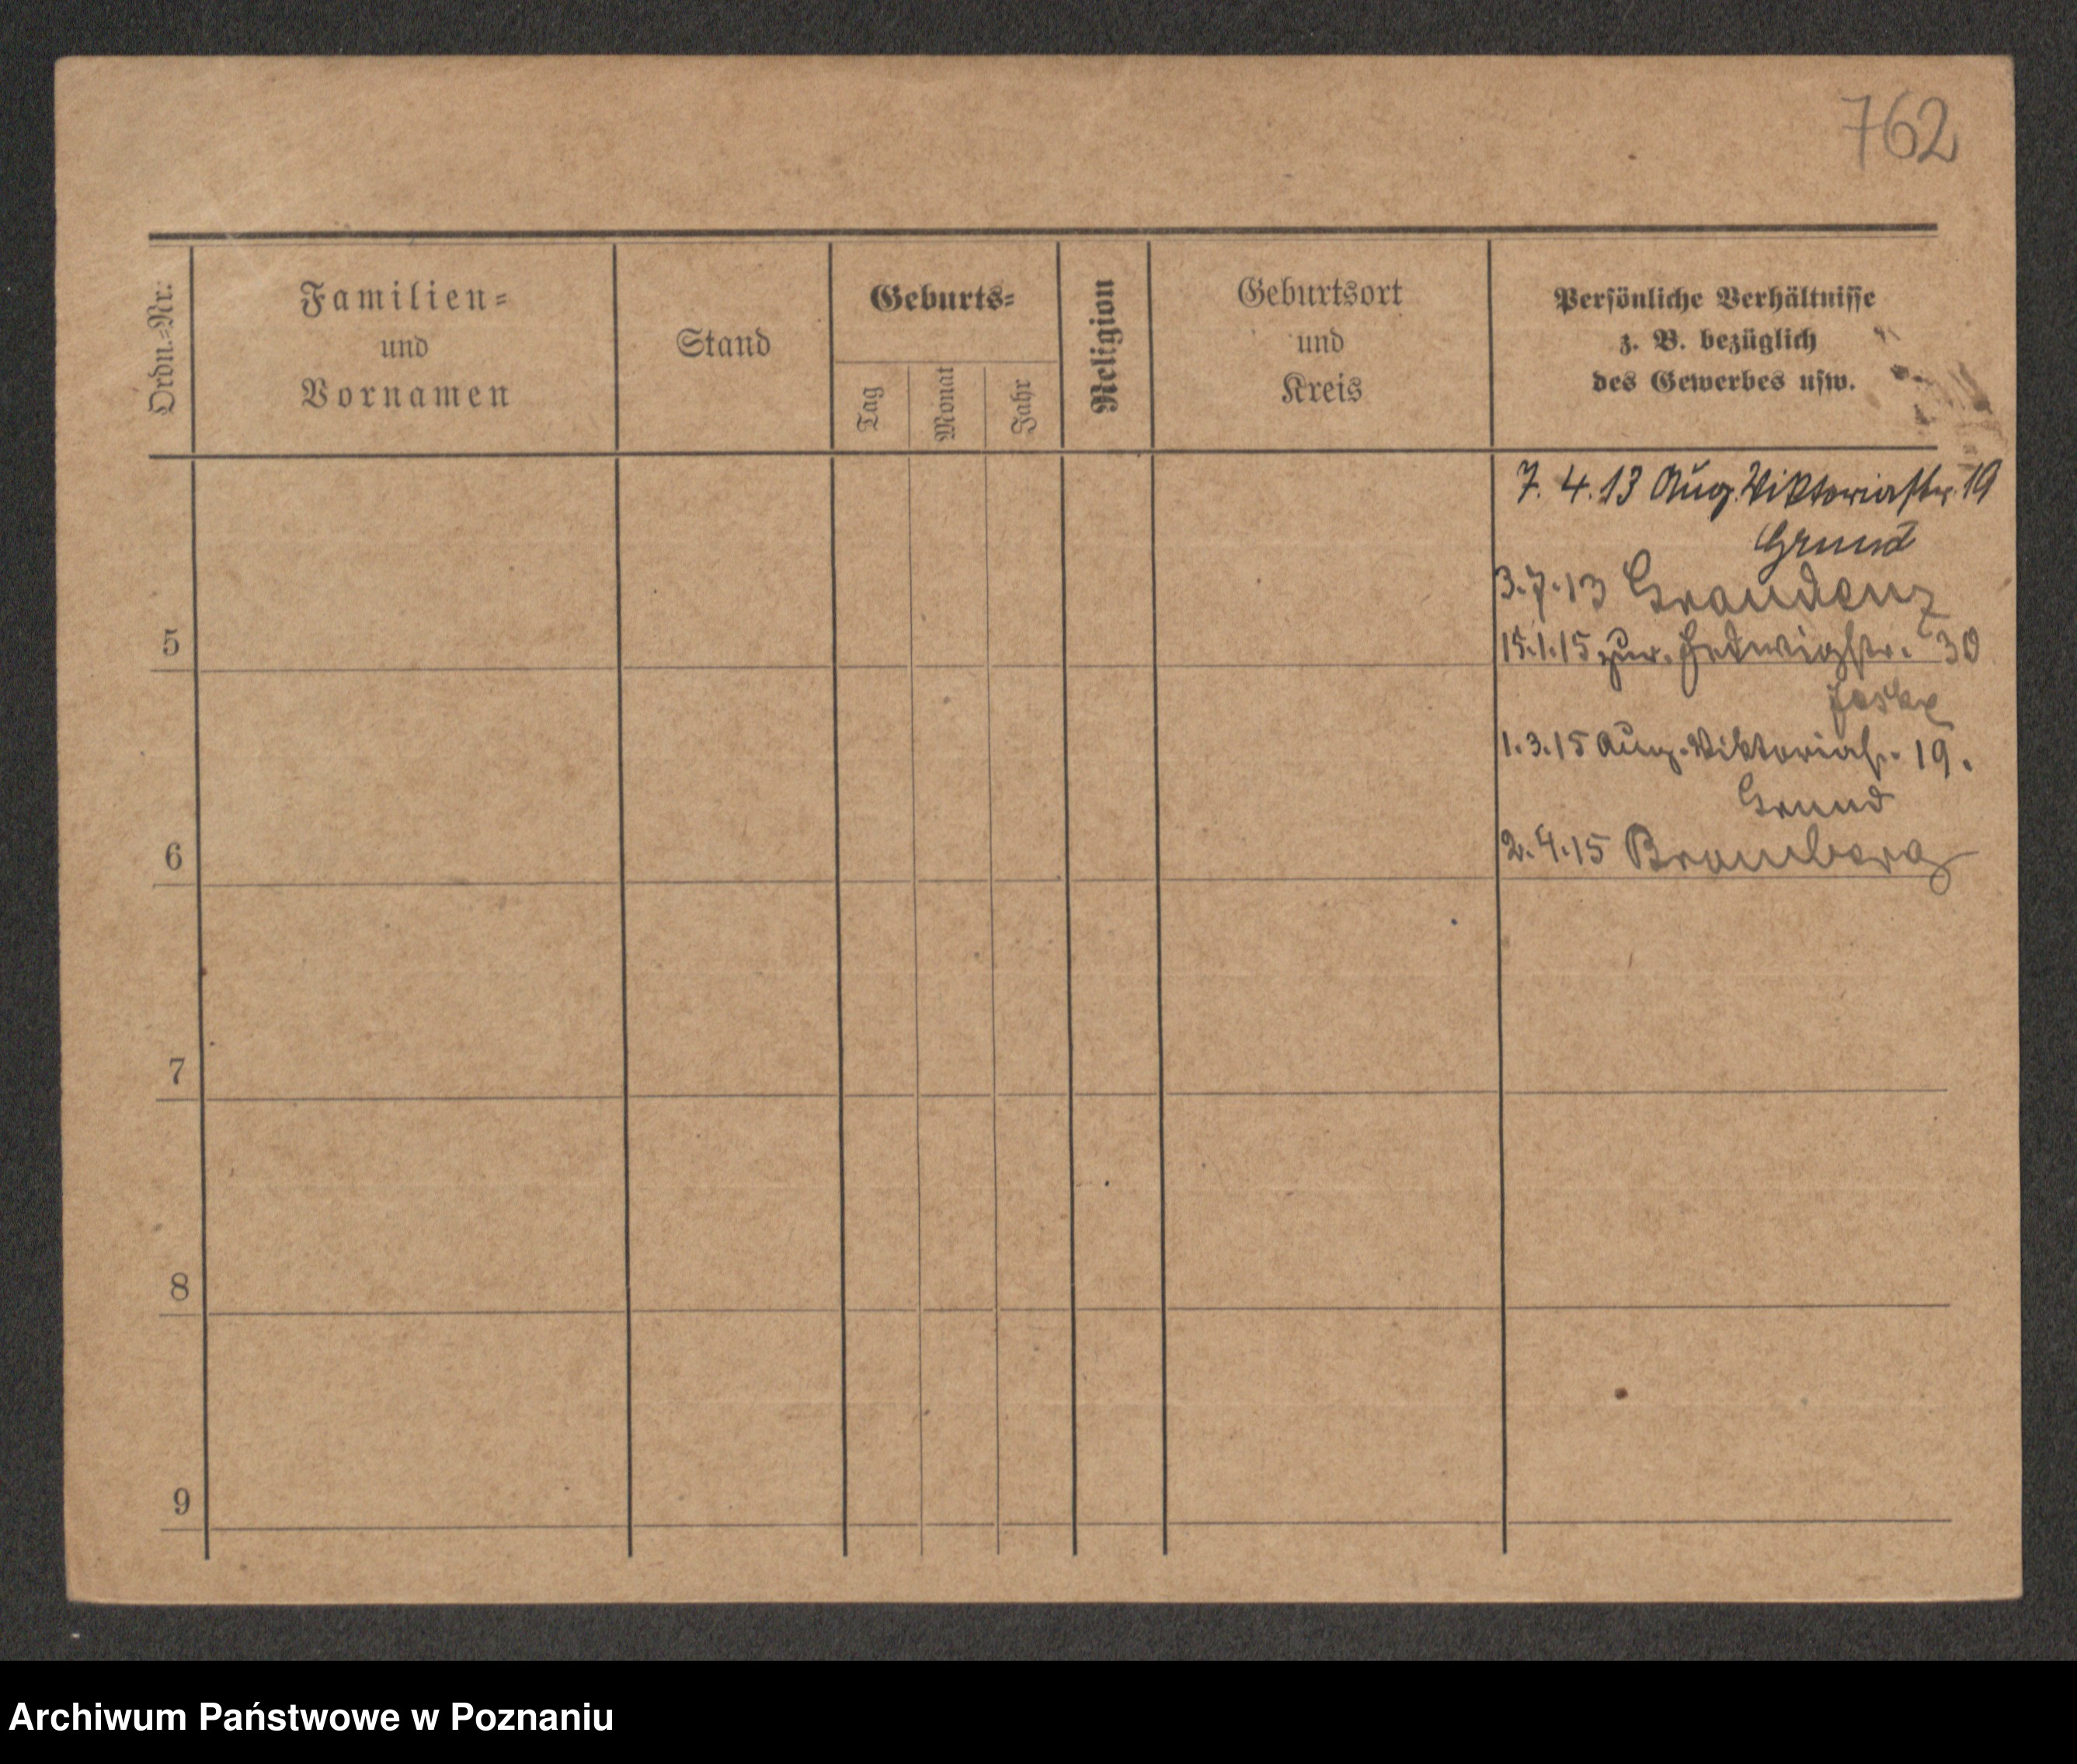 762
Ordn.=Nr.
Familien=
und
Vornamen
Stand
Geburts=
Tag
Monat
Jahr
Religion
Geburtsort
und
Kreis
Persönliche Verhältnisse
z. B. bezüglich
des Gewerbes usw.
7. 4. 13 Aug. Viktoriastr. 19
Grund
3.7.13 Graudenz
5
15.1.15 zur. Hedwigstr. 30
Jeske
1.3.15 Aug. Viktoriast. 19.
Grund
6
2.4.15 Bromberg
7
8
9
Archiwum Państwowe w Poznaniu